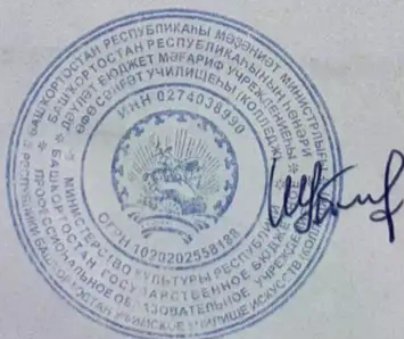 БАШҠОРТОСТАН РЕСПУБЛИКАҺЫ МӘҘӘНИӘТ МИНИСТРЛЫҒЫ
БАШҠОРТОСТАН РЕСПУБЛИКАҺЫНЫҢ ҺӨНӘРИ
ДӘҮЛӘТ БЮДЖЕТ МӘҒАРИФ УЧРЕЖДЕНИЕҺЫ
ӨФӨ СӘНҒӘТ УЧИЛИЩЕҺЫ (КОЛЛЕДЖ)
ИНН 0274038990
ОГРН 1020202558188
МИНИСТЕРСТВО КУЛЬТУРЫ РЕСПУБЛИКИ
БАШКОРТОСТАН ГОСУДАРСТВЕННОЕ БЮДЖЕТНОЕ
ПРОФЕССИОНАЛЬНОЕ ОБРАЗОВАТЕЛЬНОЕ УЧРЕЖДЕНИЕ
РЕСПУБЛИКИ БАШКОРТОСТАН УФИМСКОЕ УЧИЛИЩЕ ИСКУССТВ (КОЛЛЕДЖ)